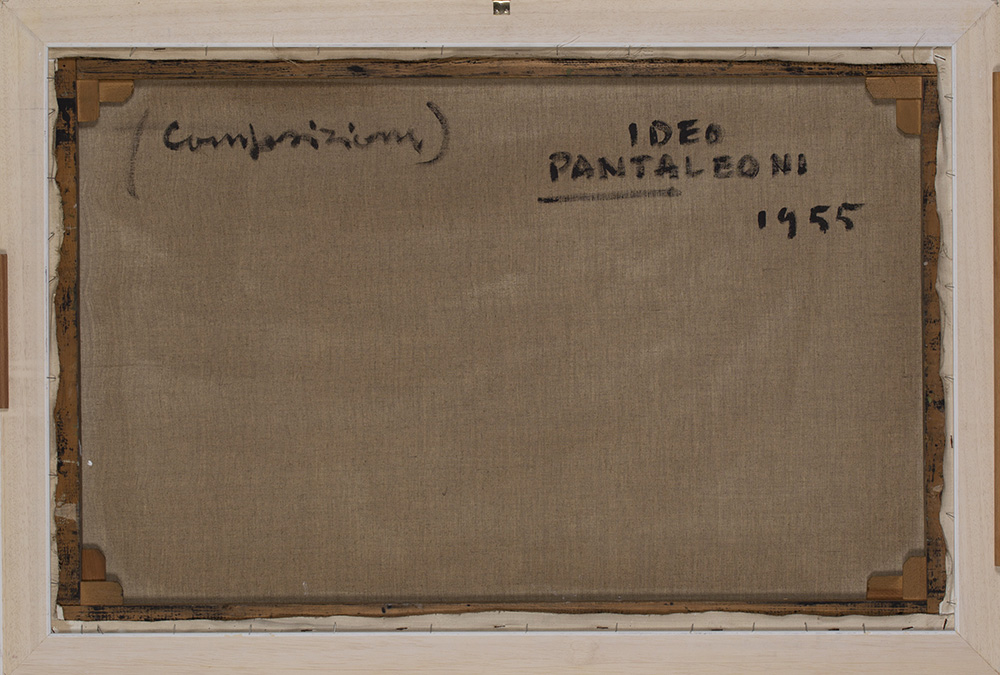 (Composizione)
IDEO
PANTALEONI
1955